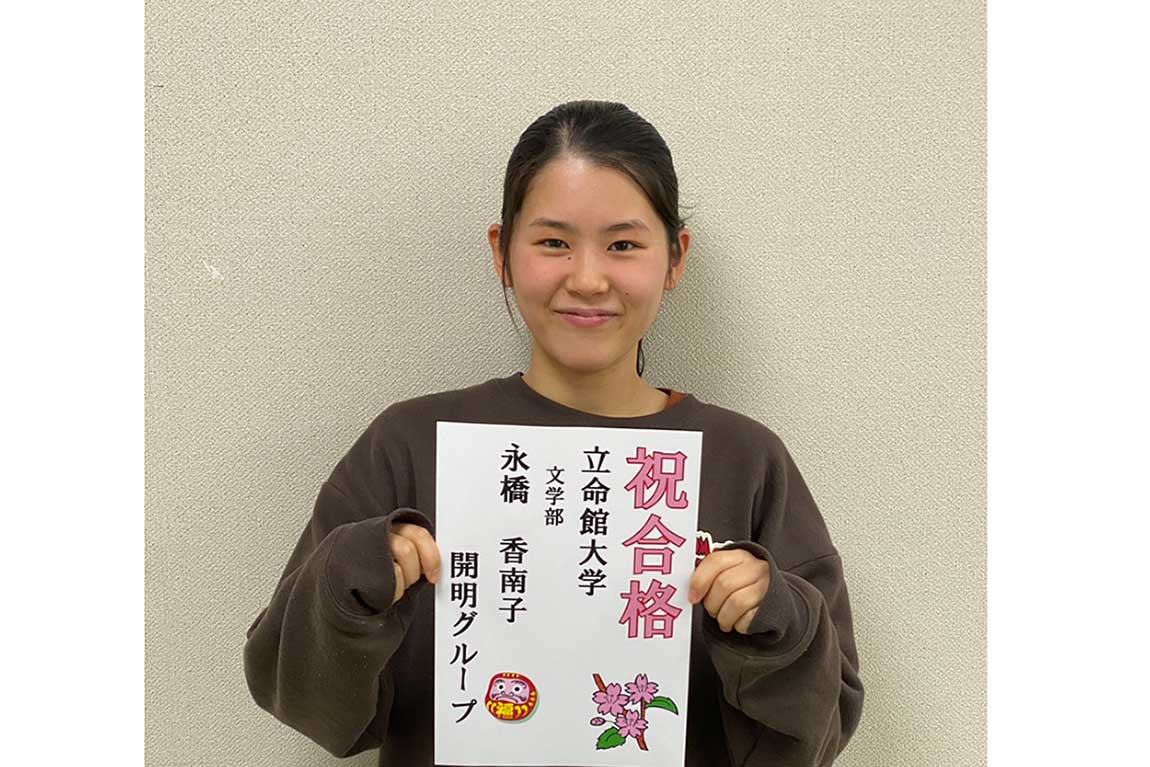 祝合格
立命館大学
文学部
永橋 香南子
開明グループ
福